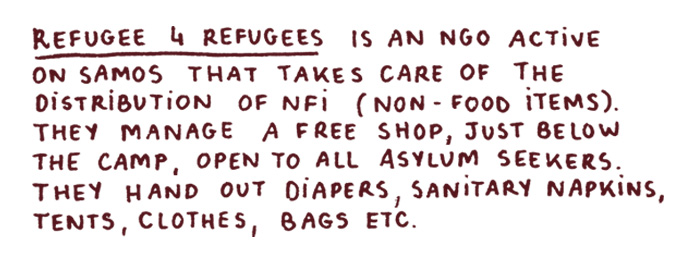 REFUGEE 4 REFUGEES IS AN NGO ACTIVE
ON SAMOS THAT TAKES CARE OF THE
DISTRIBUTION OF NFI (NON-FOOD ITEMS).
THEY MANAGE A FREE SHOP, JUST BELOW
THE CAMP, OPEN TO ALL ASYLUM SEEKERS.
THEY HAND OUT DIAPERS, SANITARY NAPKINS,
TENTS, CLOTHES, BAGS ETC.